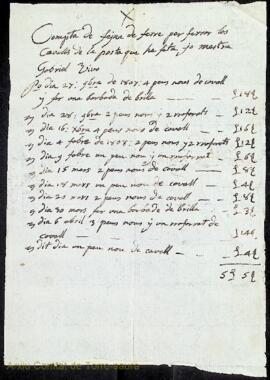 Compta de fejne de ferre per ferrar los
Cavalls de la posta que he feta jo mestra
Gabriel Vivo
Po dia 27: gbre de 1807: 4 peus nous de cavall
y fer una barbada de brilla £18
y dia 28: gbre 2 peus nous y 2 raforats £12
y dia 16: 4 peus nous de cavall £16
y dia 4 febre de 1808: 2 peus nous y 2 raforats £12
y dia 9 febre un peu nou y un raforat £6
y dia 15 mars 2 peus nous de cavall £8
y dia 18 mars un peu nou de cavall £4
y dia 20 mars 2 peus nous de cavall £8
y dia 30 mars fer una barbada de brilla £3
y dia 6 abril 3 peus nous y un raforat de
cavall £14
y dit dia un peu nou de cavall £4
5£ 5
Arxiu Comtal de Torre-saura